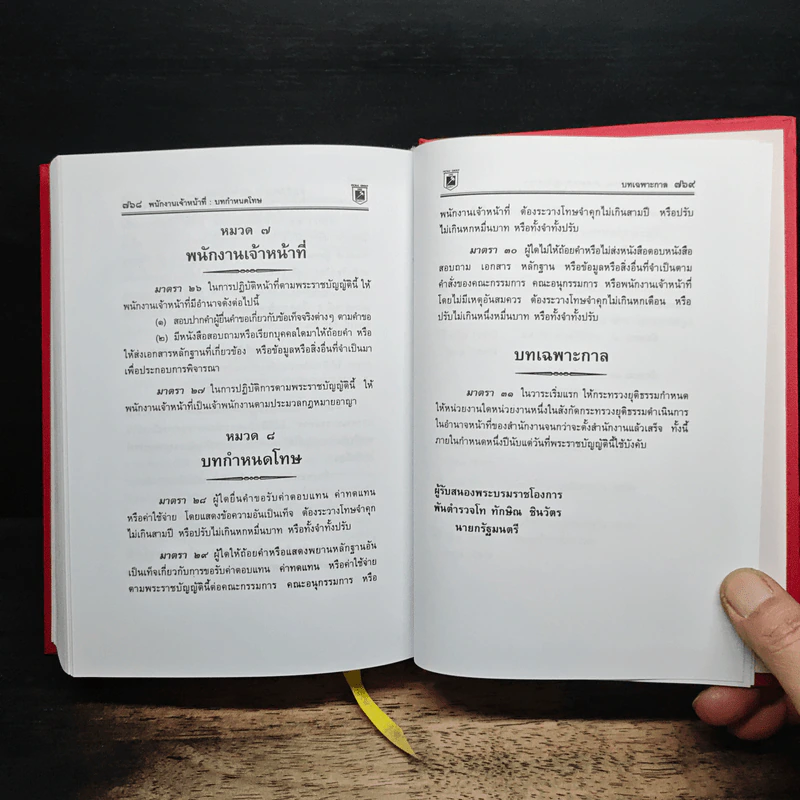 ๗๖๘ พนักงานเจ้าหน้าที่ : บทกำหนดโทษ
หมวด ๗
พนักงานเจ้าหน้าที่
มาตรา ๒๖ ในการปฏิบัติหน้าที่ตามพระราชบัญญัตินี้ ให้
พนักงานเจ้าหน้าที่มีอำนาจดังต่อไปนี้
(๑) สอบปากคำผู้ยื่นคำขอเกี่ยวกับข้อเท็จจริงต่างๆ ตามคำขอ
(๒) มีหนังสือสอบถามหรือเรียกบุคคลใดมาให้ถ้อยคำ หรือ
ให้ส่งเอกสารหลักฐานที่เกี่ยวข้อง หรือข้อมูลหรือสิ่งอื่นที่จำเป็นมา
เพื่อประกอบการพิจารณา
มาตรา ๒๗ ในการปฏิบัติการตามพระราชบัญญัตินี้ ให้
พนักงานเจ้าหน้าที่เป็นเจ้าพนักงานตามประมวลกฎหมายอาญา
หมวด ๘
บทกำหนดโทษ
มาตรา ๒๘ ผู้ใดยื่นคำขอรับค่าตอบแทน ค่าทดแทน
หรือค่าใช้จ่าย โดยแสดงข้อความอันเป็นเท็จ ต้องระวางโทษจำคุก
ไม่เกินสามปี หรือปรับไม่เกินหกหมื่นบาท หรือทั้งจำทั้งปรับ
มาตรา ๒๙ ผู้ใดให้ถ้อยคำหรือแสดงพยานหลักฐานอัน
เป็นเท็จเกี่ยวกับการขอรับค่าตอบแทน ค่าทดแทน หรือค่าใช้จ่าย
ตามพระราชบัญญัตินี้ต่อคณะกรรมการ คณะอนุกรรมการ หรือ
บทเฉพาะกาล ๗๖๙
พนักงานเจ้าหน้าที่ ต้องระวางโทษจำคุกไม่เกินสามปี หรือปรับ
ไม่เกินหกหมื่นบาท หรือทั้งจำทั้งปรับ
มาตรา ๓๐ ผู้ใดไม่ให้ถ้อยคำหรือไม่ส่งหนังสือตอบหนังสือ
สอบถาม เอกสาร หลักฐาน หรือข้อมูลหรือสิ่งอื่นที่จำเป็นตาม
คำสั่งของคณะกรรมการ คณะอนุกรรมการ หรือพนักงานเจ้าหน้าที่
โดยไม่มีเหตุอันสมควร ต้องระวางโทษจำคุกไม่เกินหกเดือน หรือ
ปรับไม่เกินหนึ่งหมื่นบาท หรือทั้งจำทั้งปรับ
บทเฉพาะกาล
มาตรา ๓๑ ในวาระเริ่มแรก ให้กระทรวงยุติธรรมกำหนด
ให้หน่วยงานใดหน่วยงานหนึ่งในสังกัดกระทรวงยุติธรรมดำเนินการ
ในอำนาจหน้าที่ของสำนักงานจนกว่าจะตั้งสำนักงานแล้วเสร็จ ทั้งนี้
ภายในกำหนดหนึ่งปีนับแต่วันที่พระราชบัญญัตินี้ใช้บังคับ
ผู้รับสนองพระบรมราชโองการ
พันตำรวจโท ทักษิณ ชินวัตร
นายกรัฐมนตรี